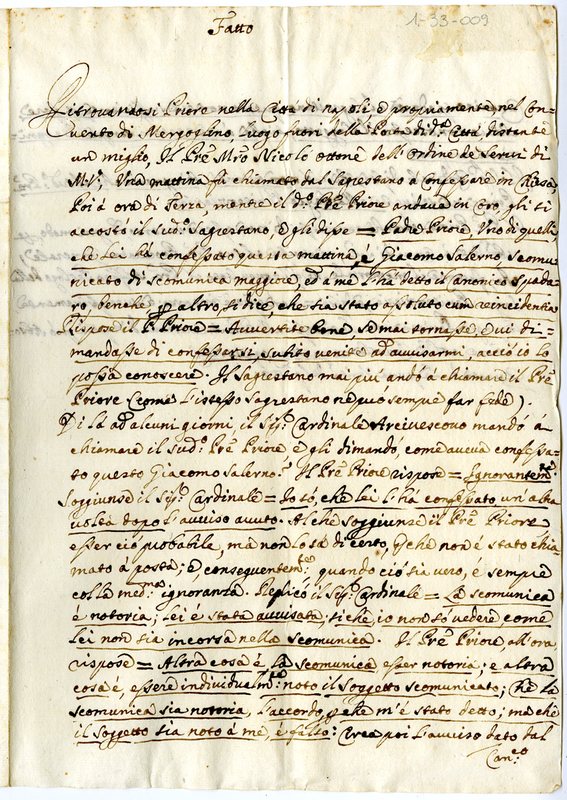 1-33-009
Fatto
Ritrovandosi Priore nella Città di napoli e propriamente nel Con-
vento di Mergoglino, luogo fuori della Porta di d.ª Città distante
un miglio, Il Prē Mrō Nicolo ottone dell'ordine de Servi di
M. V., Una mattina fu chiamato dal Sagrestano à Confessare in Chiesa
Poi à ora di Terza, mentre il d.º Prē Priore andava in Coro, gli si
accostò il Sud.º Sagrestano, e gli disse = Padre Priore, Uno di quelli
che Lei hà confessato questa mattina, è Giacomo Salerno, scomu-
nicato di scomunica maggiore, ed à me l'hà detto il Canonico Spada-
ro, benche per altro, si dice, che sia stato assoluto cum reincidentia
Rispose il P. Priore = Avvertite bene, se mai tornasse, e vi di-
mandasse di confessarsi, subito venite ad avvisarmi, acciò io lo
possa conoscere. Il Sagrestano mai più andò à chiamare il Prē
Priore (come l'istesso Sagrestano ne può sempre far fede).
Di là ad alcuni giorni, il Sig.r Cardinale Arcivescovo mandò à
chiamare il Sud.º Prē Priore e gli dimandò, come aveva confessa-
to questo Giacomo Salerno? Il Prē Priore rispose = Ignorantem.te
Soggiunse il Sig.r Cardinale = Io sò, che lei l'hà confessato un'altra
volta dopo l'avviso avuto. Al che soggiunse il Prē Priore
esser ciò probabile, mà non lo sà di certo, perche non è stato chia-
mato à posta; e conseguentem.te quando ciò sia vero, è sempre
colla med.ma ignoranza. Replicò il Sig.r Cardinale = La scomunica
è notoria; Lei è stato avvisato; sicche, io non sò vedere come
Lei non sia incorso nella scomunica. Il Prē Priore, all'ora
rispose = Altra cosa è, la scomunica esser notoria; e altra
cosa è, essere individualm.te noto il soggetto scomunicato; Che la
scomunica sia notoria, l'accordo, perche m'è stato detto; ma che
il soggetto sia noto à me, è falso: Circa poi l'avviso dato dal
Can.co